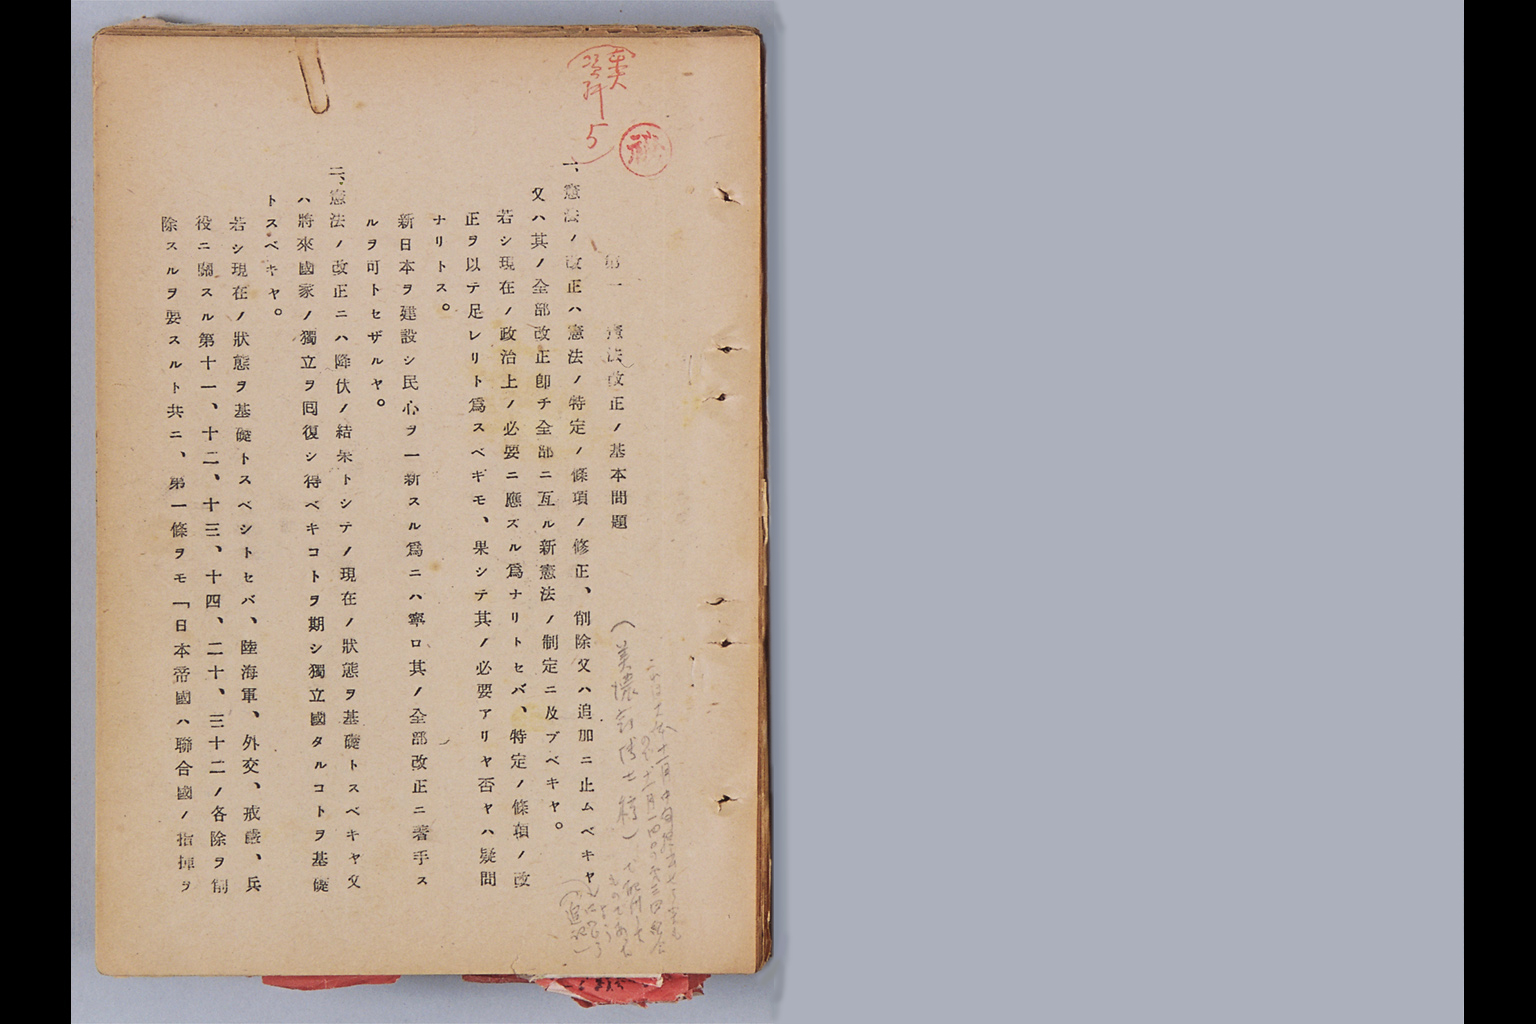 秘
5
第一 憲法改正ノ基本問題
(美濃部博士稿)
一、憲法ノ改正ハ憲法ノ特定ノ條項ノ修正、削除又ハ追加ニ止ムベキヤ
又ハ其ノ全部改正卽チ全部ニ亙ル新憲法ノ制定ニ及ブベキヤ。
若シ現在ノ政治上ノ必要ニ應ズル爲ナリトセバ、特定ノ條項ノ改
正ヲ以テ足レリト爲スベキモ、果シテ其ノ必要アリヤ否ヤハ疑問
ナリトス。
新日本ヲ建設シ民心ヲ一新スル爲ニハ寧ロ其ノ全部改正ニ著手ス
ルヲ可トセザルヤ。
二、憲法ノ改正ニハ降伏ノ結果トシテノ現在ノ狀態ヲ基礎トスベキヤ又
ハ將來國家ノ獨立ヲ囘復シ得ベキコトヲ期シ獨立國タルコトヲ基礎
トスベキヤ。
若シ現在ノ狀態ヲ基礎トスベシトセバ、陸海軍、外交、戒嚴、兵
役ニ關スル第十一、十二、十三、十四、二十、三十二ノ各除ヲ削
除スルヲ要スルト共ニ、第一條ヲモ「日本帝國ハ聯合國ノ指揮ヲ